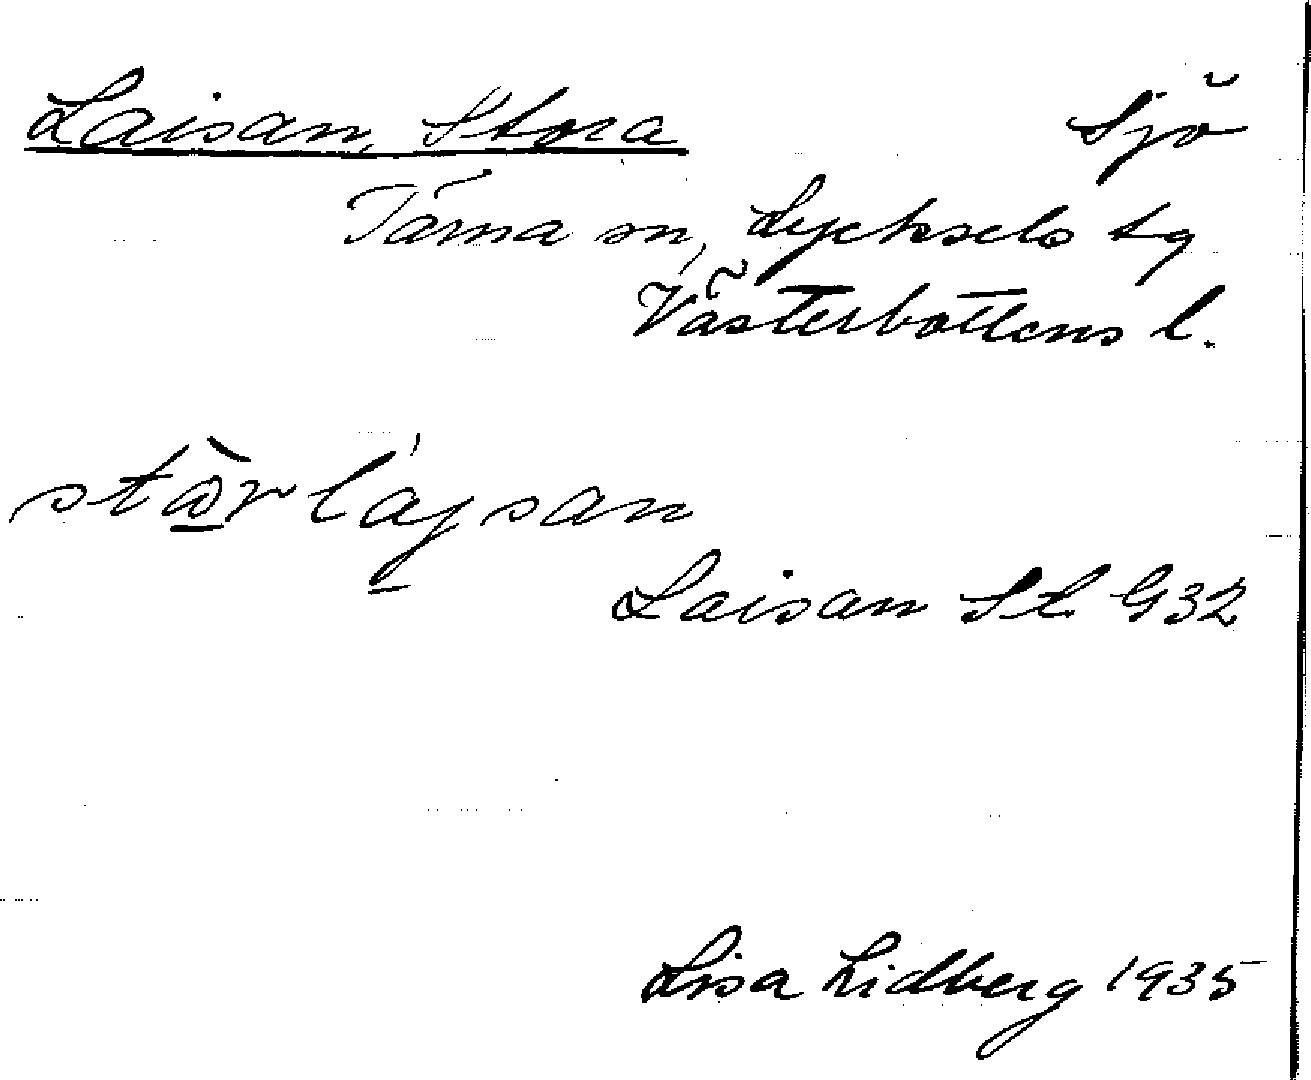 Laisan, Stora Sjö
Tärna sn, Lycksele tg
Västerbottens l.
stòrlájsan
Laisan St. G32
Lisa Lidberg 1935